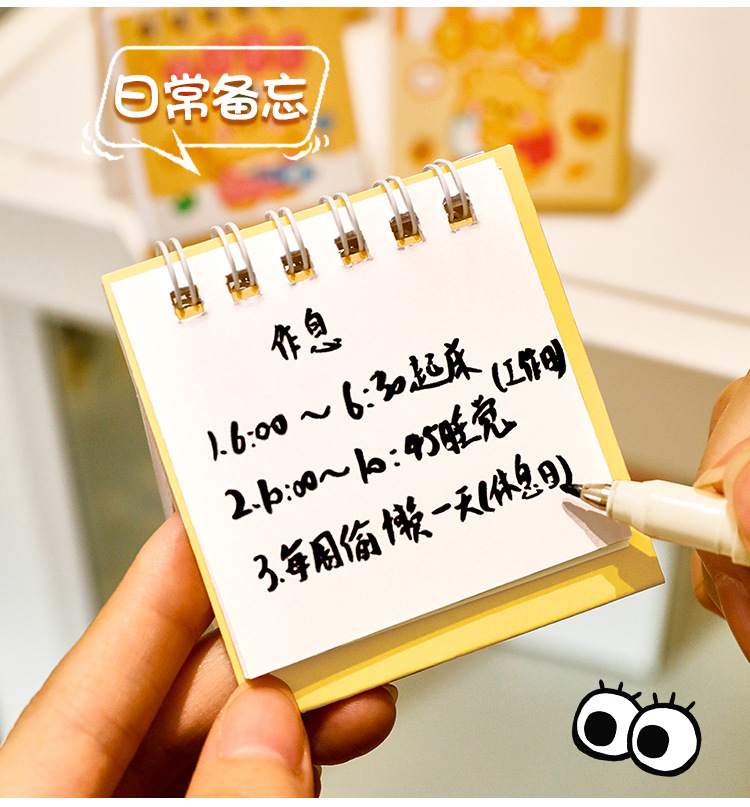 日常备忘
作息
1.6:00~6:30起床(工作日)
2.10:00~10:45睡觉
3.每周偷懒一天(休息日)